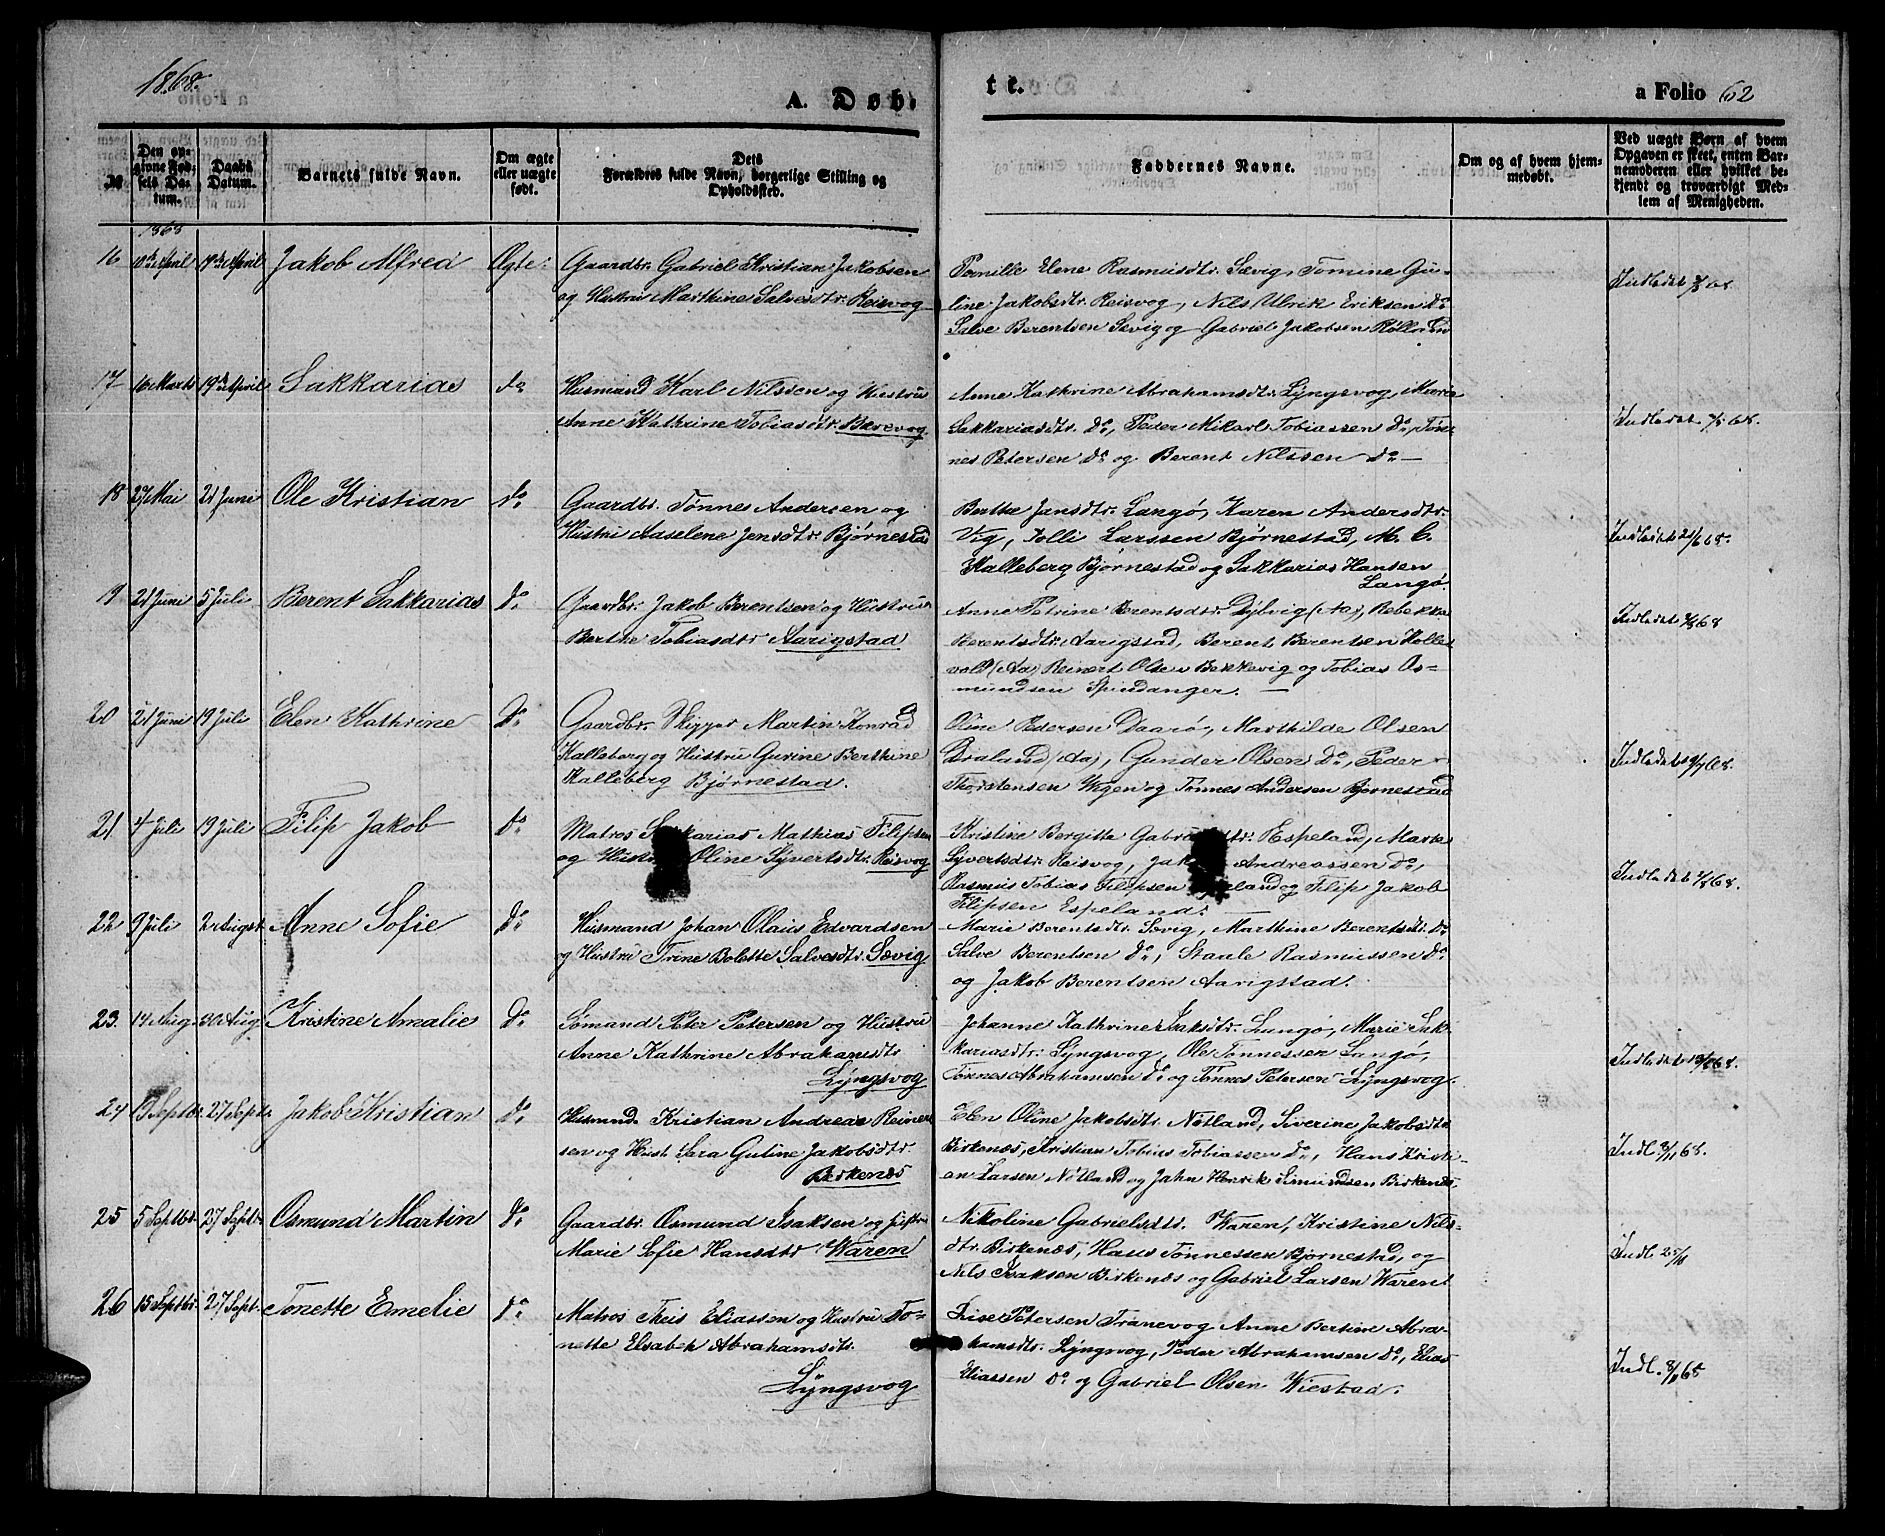 1868.
A. Døb-
te.
a Folio 62
№
Den opgivne Fødsels Datum.
Daabs Datum.
Barnets fulde Navn.
Om ægte eller uægte født.
Dets Forældres fulde Navn, borgerlige Stilling og Opholdssted.
Faddernes Navne.
Om og af hvem hjemmedøbt.
Ved uægte Børn af hvem Opgaven er skeet, enten Barnemoderen eller hvilket bekjendt og troværdigt Medlem af Menigheden.
1868
16 10de April 19de April Jakob Alfred Ægte:
Gaardbr. Gabriel Kristian Jakobsen
og Hustru Marthine Salvesdtr. Reisvog
Pernille Elene Rasmusdtr. Sævig, Tomine Gu-
line Jakobsdtr. Reisvog, Nils Ulrik Eriksen Do
Salve Berentsen Sevig og Gabriel Jakobsen
Indledet
17 16 Marts 19de April Sakkarias do
Husmand Karl Nilsen og Hustru
Anne Kathrine Tobiasdtr. Barevog
Anne Kathrine Abrahamsdtr. Lyngsvog, Marie
Sakkariasdtr. Do, Peder Mikael Tobiassen Do, Tøn-
nes Petersen Do og Berent Nilssen Do —
Indledet 68.
18 27 Mai 21 Juni Ole Kristian do
Gaardbr. Tønnes Andersen og
Hustru Aaselene Jensdtr. Bjørnestad
Berthe Jansdtr. Langø, Karen Andersdtr.
Vig, Tolli Larssen Bjørnestad, M. C.
Kalleberg Bjørnestad og Sakkarias Hansen
Langø.
Indledet 21/6 68.
19 21 Juni 5 Juli Berent Sakkarias do
Gaardbr. Jakob Berentsen og Hustru
Berthe Tobiasdtr Aarigstad
Anne Petrine Berentsdtr. Dylvig (Aa), Rebekka
Berentsdtr. Aarigstad, Berent Berentsen Holle-
vold (Aa) Reinert Olsen Bekkevig og Tobias Os-
mundsen Spindanger. —
Indledet 68
20 21 Juni 19 Juli Elen Kathrine Do
Gaardbr. Skipper Martin Konrad
Kalleberg og Hustru Gurine Berthine
Kalleberg Bjørnestad.
Oline Pedersen Daarø, Marthilde Olsen
Braland (Aa), Gunder Olsen Do, Peder
Thorstensen Vigen og Tønnes Andersen Bjørnestad
Indledet 19/7 68.
21 4 Juli 19 Juli Filip Jakob Do
Matros Sakkarias Mathias Filipsen
og Hustru Oline Syvertsdtr. Reisvog
Kristine Bergitte Gabrielsdtr. Espeland, Marte
Syvertsdtr. Reisvog, Jakob Andreassen Do,
Rasmus Tobias Filipsen Espeland og Filip Jakob
Filipsen Espeland. —
Indledet 68.
22 9 Juli 2 August Anne Sofie Do
Husmand Johan Olaus Edvardsen
og Hustru Trine Bolette Salvesdtr. Sævig
Marie Berentsdtr. Sævig, Marthine Berentsdtr. Do
Salve Berentsen Do, Staale Rasmussen Do
og Jakob Berentsen Aarigstad.
23. 14 Aug. 30 Aug. Kristine Amalie Do
Sømand Peter Petersen og Hustru
Anne Kathrine Abrahamsdtr.
Lyngsvog
Johanne Kathrine Isaksdtr. Langø, Marie Sak-
kariasdtr. Lyngsvog, Ole Tønnessen Langø,
Tønnes Abrahamsen Do og Tønnes Petersen Lyngsvog.
Indledet 68.
24 Septbr. 27 Septr. Jakob Kristian Do
Husmand. Kristian Andreas Reinert-
sen og Hust. Sara Guline Jakobsdtr.
Birkenæs
Elen Oline Jakobsdtr. Nøtland, Siverine Jakobsdtr.
Birkenæs, Kristian Tobias Tobiassen Do, Hans Kristi-
an Larsen Nøtland og Jahn Henrik Simundsen Birkenæs.
Indl. 8/11 68.
25 5 Septbr. 27 Septr. Osmund Martin Do
Gaardbr. Osmund Isaksen og Hustru
Marie Sofie Hansdtr Waren
Nikoline Gabrielsdtr. Waren, Kristine Nils-
dtr. Birkenæs, Hans Tønnessen Bjørnestad, og
Nils Isaksen Birkenæs og Gabriel Larsen Waren.
Indl. 25/10
26 15 Septbr. 27 Sept. Tonette Emelie Do
Matros Theis Eliassen og Hustru To-
nette Elsabeh Abrahamsdtr.
Lyngsvog
Lise Petersen Tranevog Anne Bertine Abra-
hamsdtr. Lyngsvog, Peder Abrahamsen Do, Elias
Eliassen Do og Gabriel Olsen Wiestad.
Indl. 8/11 68